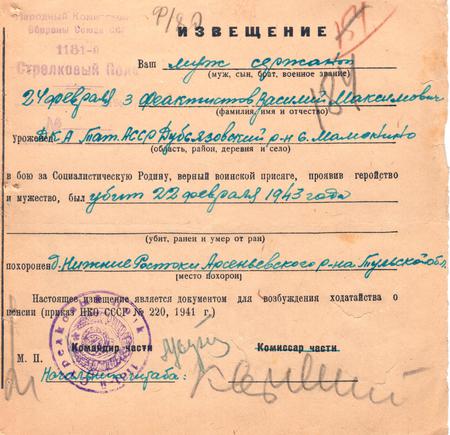 Народный Комиссариат
Обороны Союза ССР
1181-й
Стрелковый Полк
ИЗВЕЩЕНИЕ
Ваш муж сержант
(муж, сын, брат, военное звание)
24 февраля 3 Феактистов Василий Максимович
(фамилия, имя и отчество)
урожен Тат. АССР р-н с.
(область, район, деревня и село)
в бою за Социалистическую Родину, верный воинской присяге, проявив геройство
и мужество, был убит 22 февраля 1943 года
(убит, ранен и умер от ран)
похоронен д. Нижние Ростоки Арсеньевского р-на Тульской обл.
(место похорон)
Настоящее извещение является документом для возбуждения ходатайства о
пенсии (приказ НКО СССР № 220, 1941 г.)
Командир части
Комиссар части
М. П.
Начальник штаба: